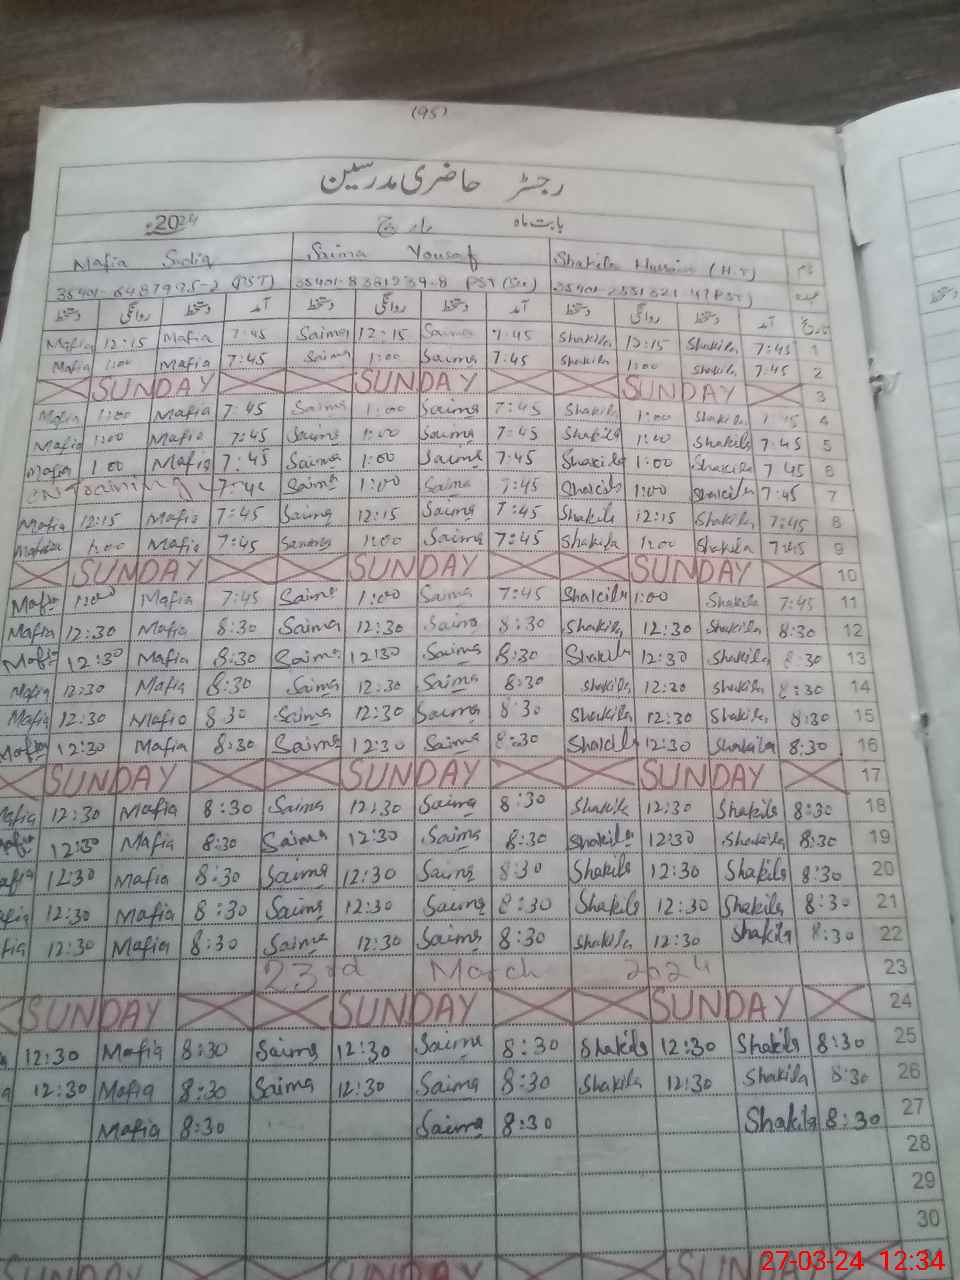 (95)
رجسٹر حاضری مدرسین
بابت ماہ مارچ 2024ء
نام Shakila Hussain (H.T) Saima Yousaf Mafia Sadiq
عہدہ PST) PST (PST)
تاریخ آمد دستخط روانگی دستخط آمد دستخط روانگی دستخط آمد دستخط روانگی دستخط
Mafia 12:15 Mafia 7:45 Saima 12:15 Saima 7:45 Shakila 12:15 Shakila 7:45 1
Mafia 1:00 Mafia 7:45 Saima 1:00 Saima 7:45 Shakila 1:00 Shakila 7:45 2
SUNDAY SUNDAY SUNDAY 3
Mafia 1:00 Mafia 7:45 Saima 1:00 Saima 7:45 Shakila 1:00 Shakila 4
Mafia 1:00 Mafia 7:45 Saima 1:00 Saima 7:45 Shakila 1:00 Shakila 7:45 5
Mafia 1:00 Mafia 7:45 Saima 1:00 Saima 7:45 Shakila 1:00 Shakila 7 45 6
ON Training Saima 1:00 Saima 7:45 Shakila 1:00 Shakila 7:45 7
Mafia 12:15 Mafia 7:45 Saima 12:15 Saima 7:45 Shakila 12:15 Shakila 7:45 8
Mafia 1:00 Mafia 7:45 Saima 1:00 Saima 7:45 Shakila 1:00 Shakila 7:45 9
SUNDAY SUNDAY SUNDAY 10
Mafia 1:00 Mafia 7:45 Saima 1:00 Saima 7:45 Shakila 1:00 Shakila 7:45 11
Mafia 12:30 Mafia 8:30 Saima 12:30 Saima 8:30 Shakila 12:30 Shakila 8:30 12
Mafia 12:30 Mafia 8:30 Saima 12:30 Saima 8:30 Shakila 12:30 Shakila 8:30 13
Mafia 12:30 Mafia 8:30 Saima 12:30 Saima 8:30 Shakila 12:30 Shakila 8:30 14
Mafia 12:30 Mafia 8:30 Saima 12:30 Saima 8:30 Shakila 12:30 Shakila 8:30 15
Mafia 12:30 Mafia 8:30 Saima 12:30 Saima 8:30 Shakila 12:30 Shakila 8:30 16
SUNDAY SUNDAY SUNDAY 17
Mafia 12:30 Mafia 8:30 Saima 12:30 Saima 8:30 Shakila 12:30 Shakila 8:30 18
12:30 Mafia 8:30 Saima 12:30 Saima 8:30 Shakila 12:30 Shakila 8:30 19
afia 12:30 Mafia 8:30 Saima 12:30 Saima 8:30 Shakila 12:30 Shakila 8:30 20
afia 12:30 Mafia 8:30 Saima 12:30 Saima 8:30 Shakila 12:30 Shakila 8:30 21
fia 12:30 Mafia 8:30 Saima 12:30 Saima 8:30 Shakila 12:30 Shakila 8:30 22
23rd March 2024 23
SUNDAY SUNDAY SUNDAY 24
a 12:30 Mafia 8:30 Saima 12:30 Saima 8:30 Shakila 12:30 Shakila 8:30 25
a 12:30 Mafia 8:30 Saima 12:30 Saima 8:30 Shakila 12:30 Shakila 8:30 26
Mafia 8:30 Saima 8:30 Shakila 8:30 27
28
29
30
SUNDAY SUNDAY SUNDAY
27-03-24 12:34